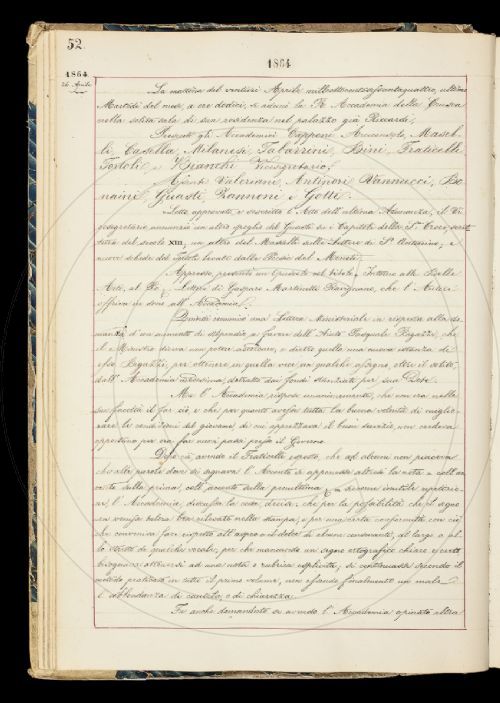 52.
1864
1864
26 Aprile
La mattina del ventisei Aprile milleottocentosessantaquattro, ultimo
Martedì del mese, a ore dodici, si adunò la R. Accademia della Crusca
nella solita sala di sua residenza nel palazzo già Riccardi,
Presenti gli Accademici Capponi Arciconsolo, Masel-
li, Casella, Milanesi, Tabarrini, Bini, Fraticelli
Tortoli, e Bianchi Vicesegretario;
Assenti Valeriani, Antinori Vannucci, Bo-
naini, Guasti, Zannoni e Gotti.
Letto approvato e sottoscritto l'Atto dell'ultima Adunanza, il Vi-
cesegretario annunzia un altro spoglio del Guasti su i Capitoli della S. Croce, scrit-
tura del secolo XIII, un altro del Maselli sulle Lettere di St. Antonino, e
nuove schede del Tortoli levate dalle Poesie del Menzini.
Appresso presentò un Opuscolo col titolo, Intorno alle Belle
Arti, al Re, Lettere di Gaspare Martinetti che l'Autore
offriva in dono all'Accademia.
Quindi comunicò una Lettera Ministeriale in risposta alla do-
manda d'un aumento di stipendio a favore dell'Aiuto Pasquale Bigazzi, che
il Ministro diceva non potere accordare, e dietro quella una nuova istanza di
esso Bigazzi, per ottenere in quella vece un qualche assegno, oltre il solito,
dall'Accademia medesima, detratto dai fondi stanziati per sua Dote.
Ma l'Accademia rispose unanimemente, che non era nella
sua facoltà il far ciò, e che per quanto avesse tutta la buona volontà di miglio-
rare le condizioni del giovane, di cui apprezzava il buon servizio, non credeva
opportuno per ora far nuovi passi presso il Governo.
Dopo ciò, avendo il Fraticelli esposto, che ad alcuni non piaceva
che alle parole dove si segnava l'Accento si apponesse altresì la nota coll'ac-
cento sulla prima, coll'accento sulla penultima, &c. siccome inutile ripetizio-
ne, l'Accademia, discussa la cosa, decise, che per la possibilità che il segno
non venisse talora ben rilevato nella stampa, e per una certa conformità con ciò
che conveniva fare rispetto all'aspro o al dolce di alcune consonanti, al largo o al-
lo stretto di qualche vocale, per che mancando un segno ortografico chiaro e certo
bisognava attenersi ad una nota o rubrica esplicita, si continuasse secondo il
metodo praticato in tutto il primo volume, non essendo finalmente un male
l'abbondanza di cautela, e di chiarezza.
Fu anche domandato se avendo l'Accademia opinato altra